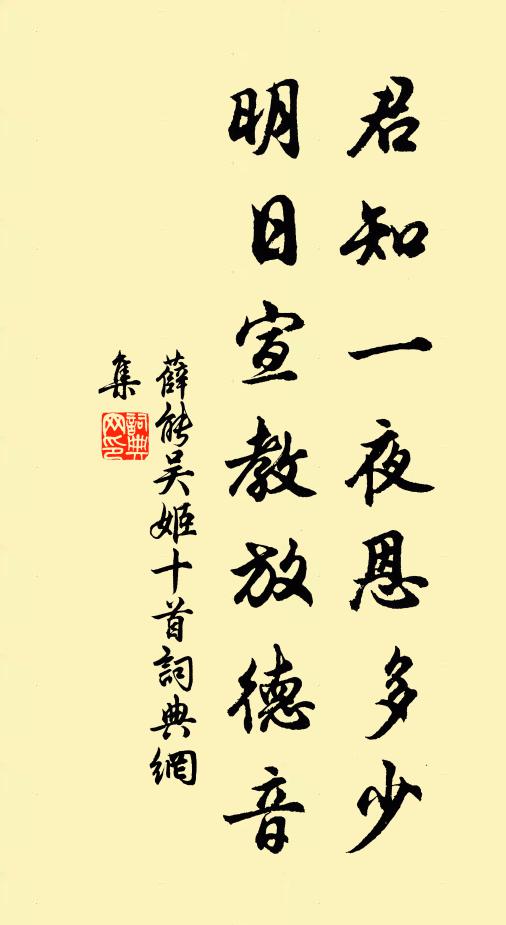 君知一夜恩多少
明日宣教放德音
薛能吴姬十首詞典網
集
詞典
网印